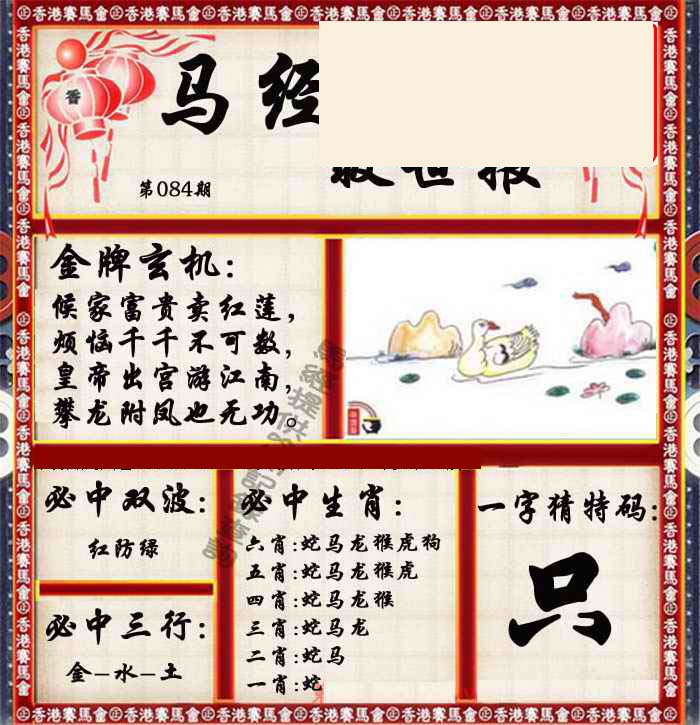 马经
救世报
第084期
金牌玄机:
候家富贵卖红莲,
烦恼千千不可数,
皇帝出宫游江南,
攀龙附凤也无功。
必中双波:
红防绿
必中三行:
金–水–土
必中生肖:
六肖:蛇马龙猴虎狗
五肖:蛇马龙猴虎
四肖:蛇马龙猴
三肖:蛇马龙
二肖:蛇马
一肖:蛇
一字猜特码:
只
香
香港賽馬會